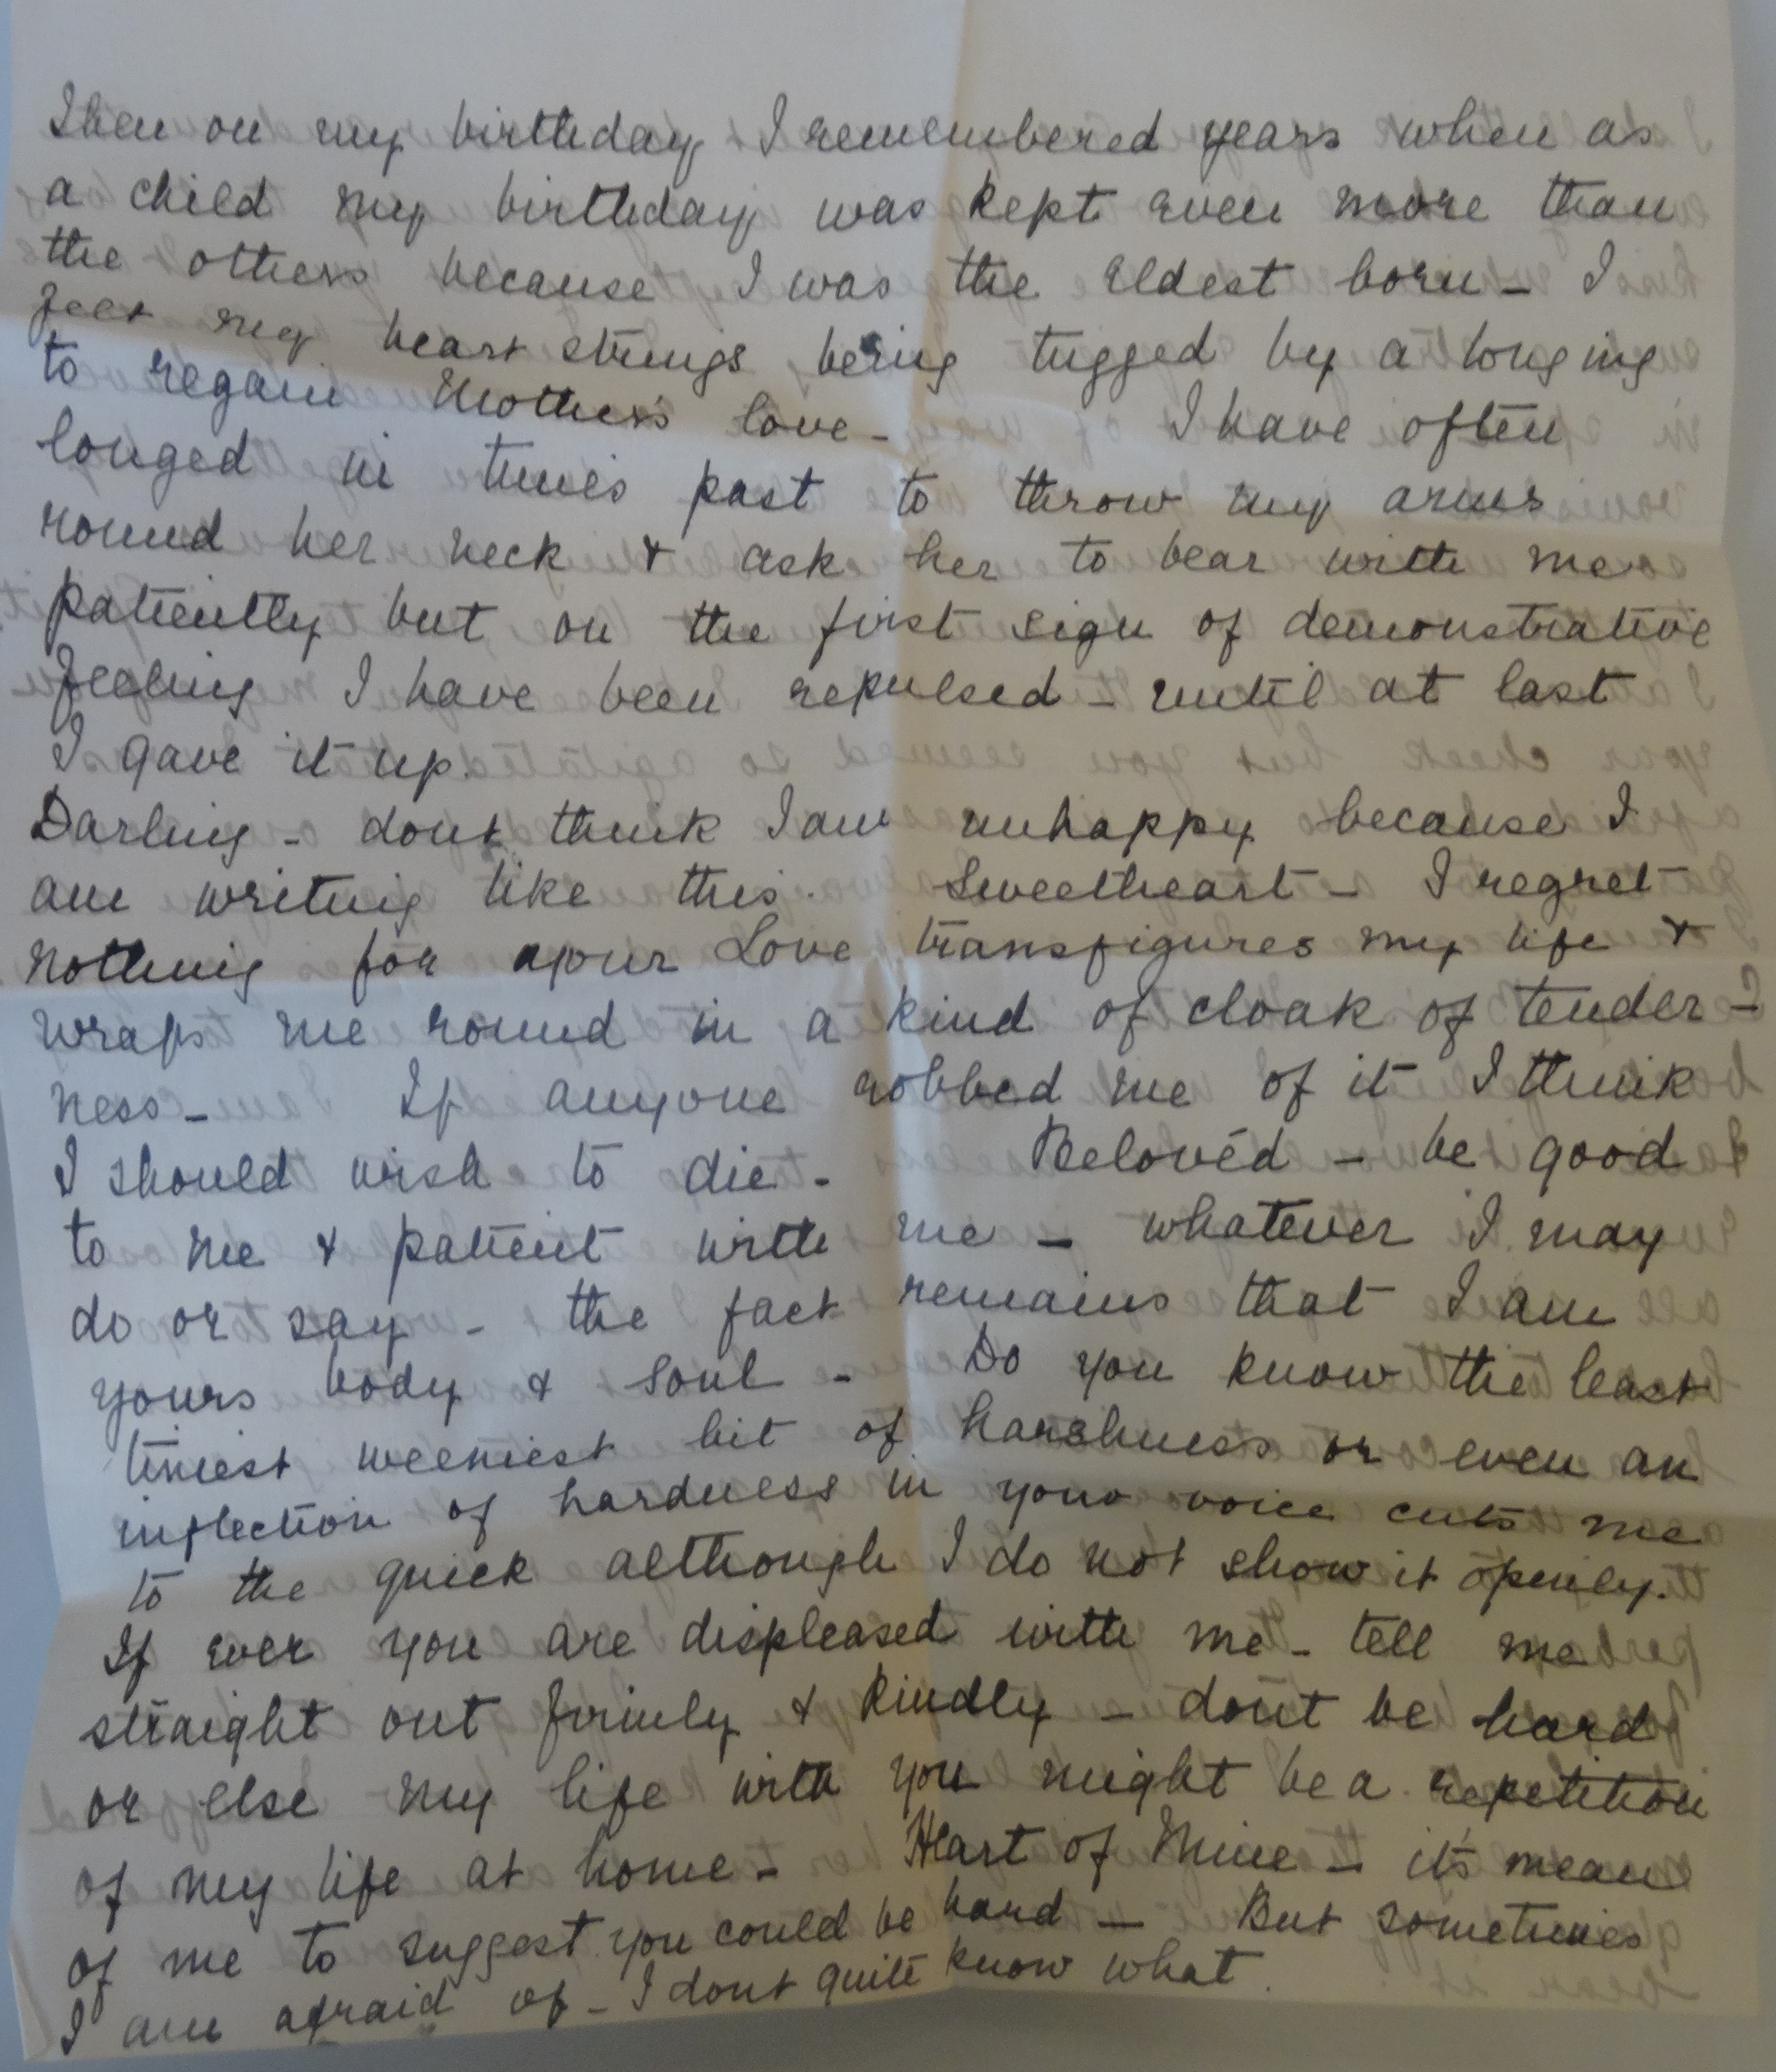 Then on my birthday I remembered years when as
a child my birthday was kept even more than
the others because I was the eldest born - I
feel my heart strings being tugged by a longing
to regain Mother's love - I have often
longed in times past to throw my arms
round her neck & ask her to bear with me
patiently but on the first sign of demonstrative
feeling I have been repulsed - until at last
I gave it up.
Darling - dont think I am unhappy because I
am writing like this. Sweetheart - I regret
nothing for your Love transfigures my life &
wraps me round in a kind of cloak of tender -
ness - If anyone robbed me of it I think
I should wish to die - Belovéd - be good
to me & patient with me - whatever I may
do or say - the fact remains that I am
yours body & soul - Do you know the least
tiniest weeniest bit of harshness or even an
inflection of hardness in your voice cuts me
to the quick although I do not show it openly.
If ever you are displeased with me - tell me
straight out firmly & kindly - dont be hard
or else my life with you might be a repetition
of my life at home - Heart of Mine - it's mean
of me to suggest you could be hard - But sometimes
I am afraid of - I dont quite know what.